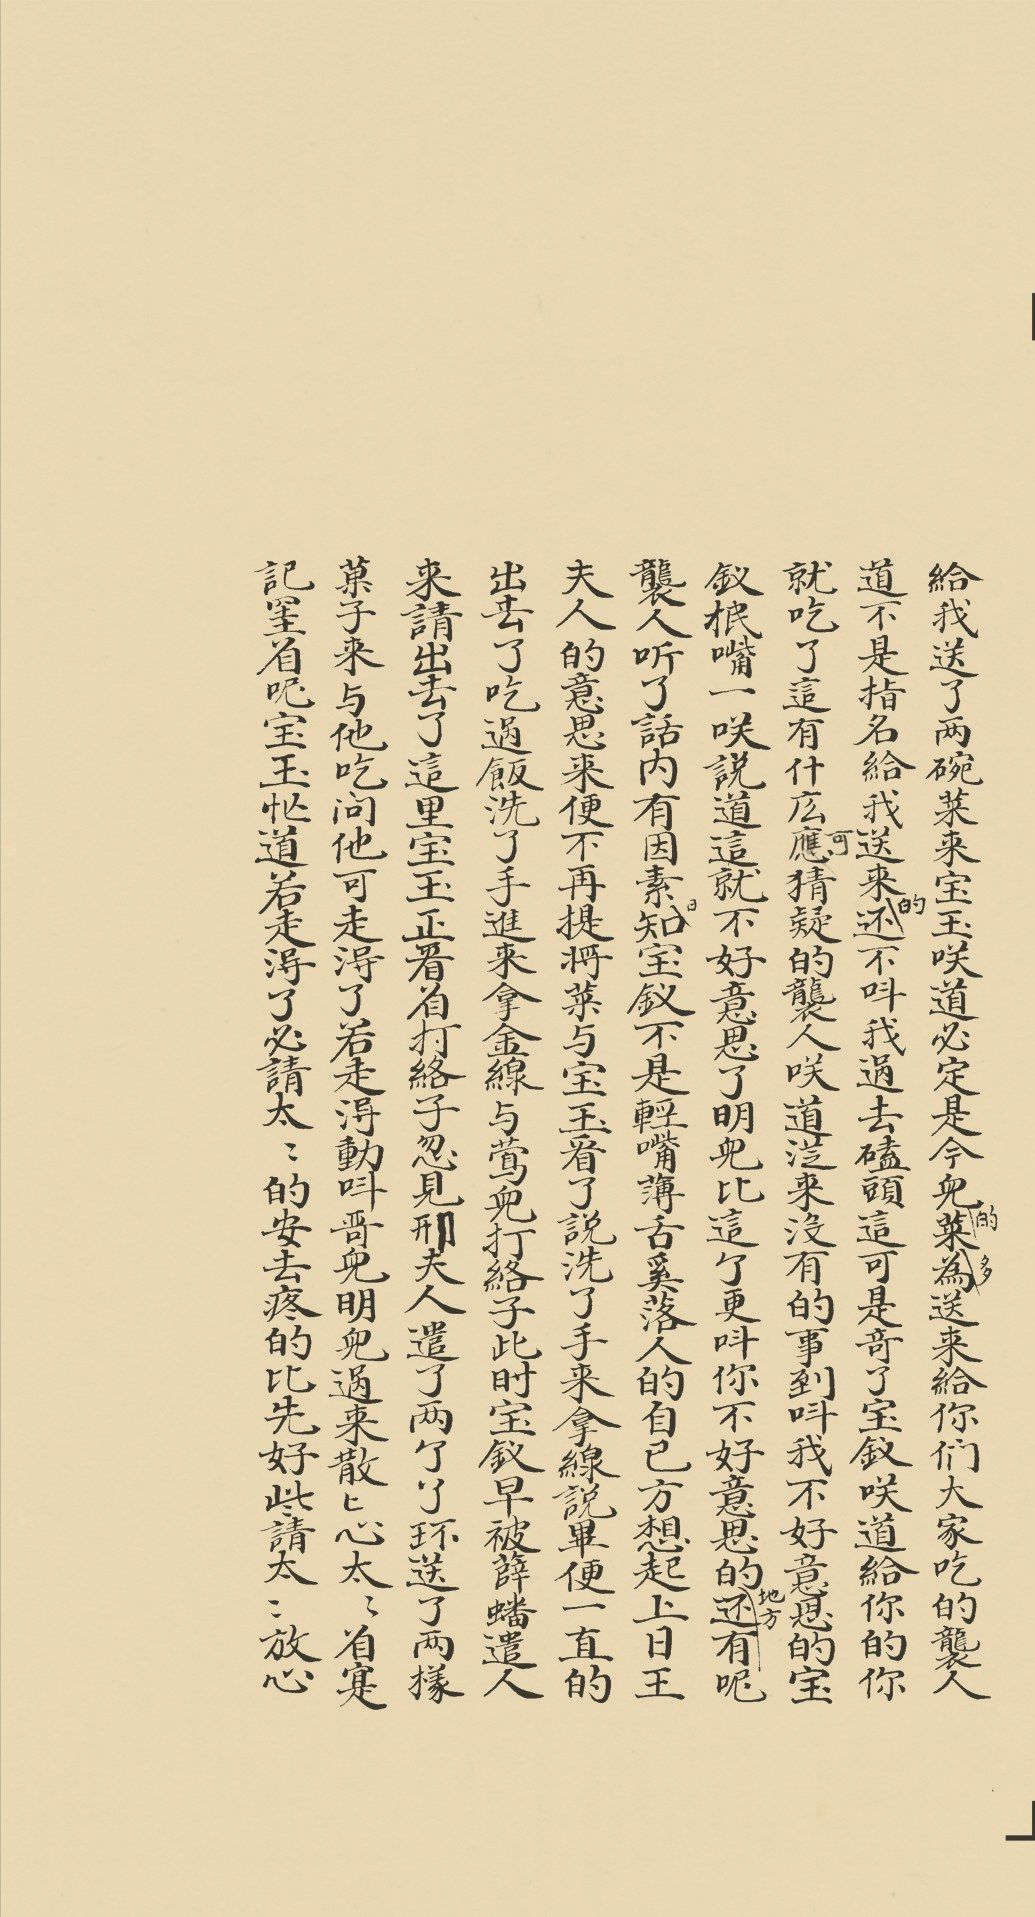 給我送了两碗菜来宝玉咲道必定是今兒的菜多為送来給你们大家吃的襲人
道不是指名給我送来的还不呌我過去磕頭這可是竒了宝釵咲道給你的你
就吃了這有什広可應猜疑的襲人咲道従来没有的事到呌我不好意思的宝
釵抿嘴一咲説道這就不好意思了明兒比這个更呌你不好意思的地方还有呢
襲人听了話内有因素知宝釵不是輕嘴薄舌奚落人的自己方想起上日王
夫人的意思来便不再提将菜与宝玉看了説洗了手来拿線説畢便一直的
出去了吃過飯洗了手進来拿金線与莺兒打絡子此时宝釵早被薛蟠遣人
来請出去了這里宝玉正看着打絡子忽見邢夫人遣了两个丫环送了两様
菓子来与他吃问他可走得了若走得動呌哥兒明兒過来散〻心太〻着寔
記罣着呢宝玉忙道若走得了必請太〻的安去疼的比先好些請太〻放心